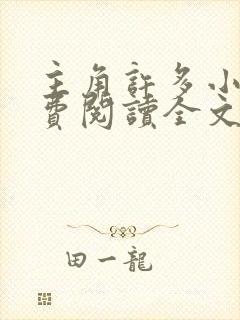 主角許多小
費閱讀全文
田一龍